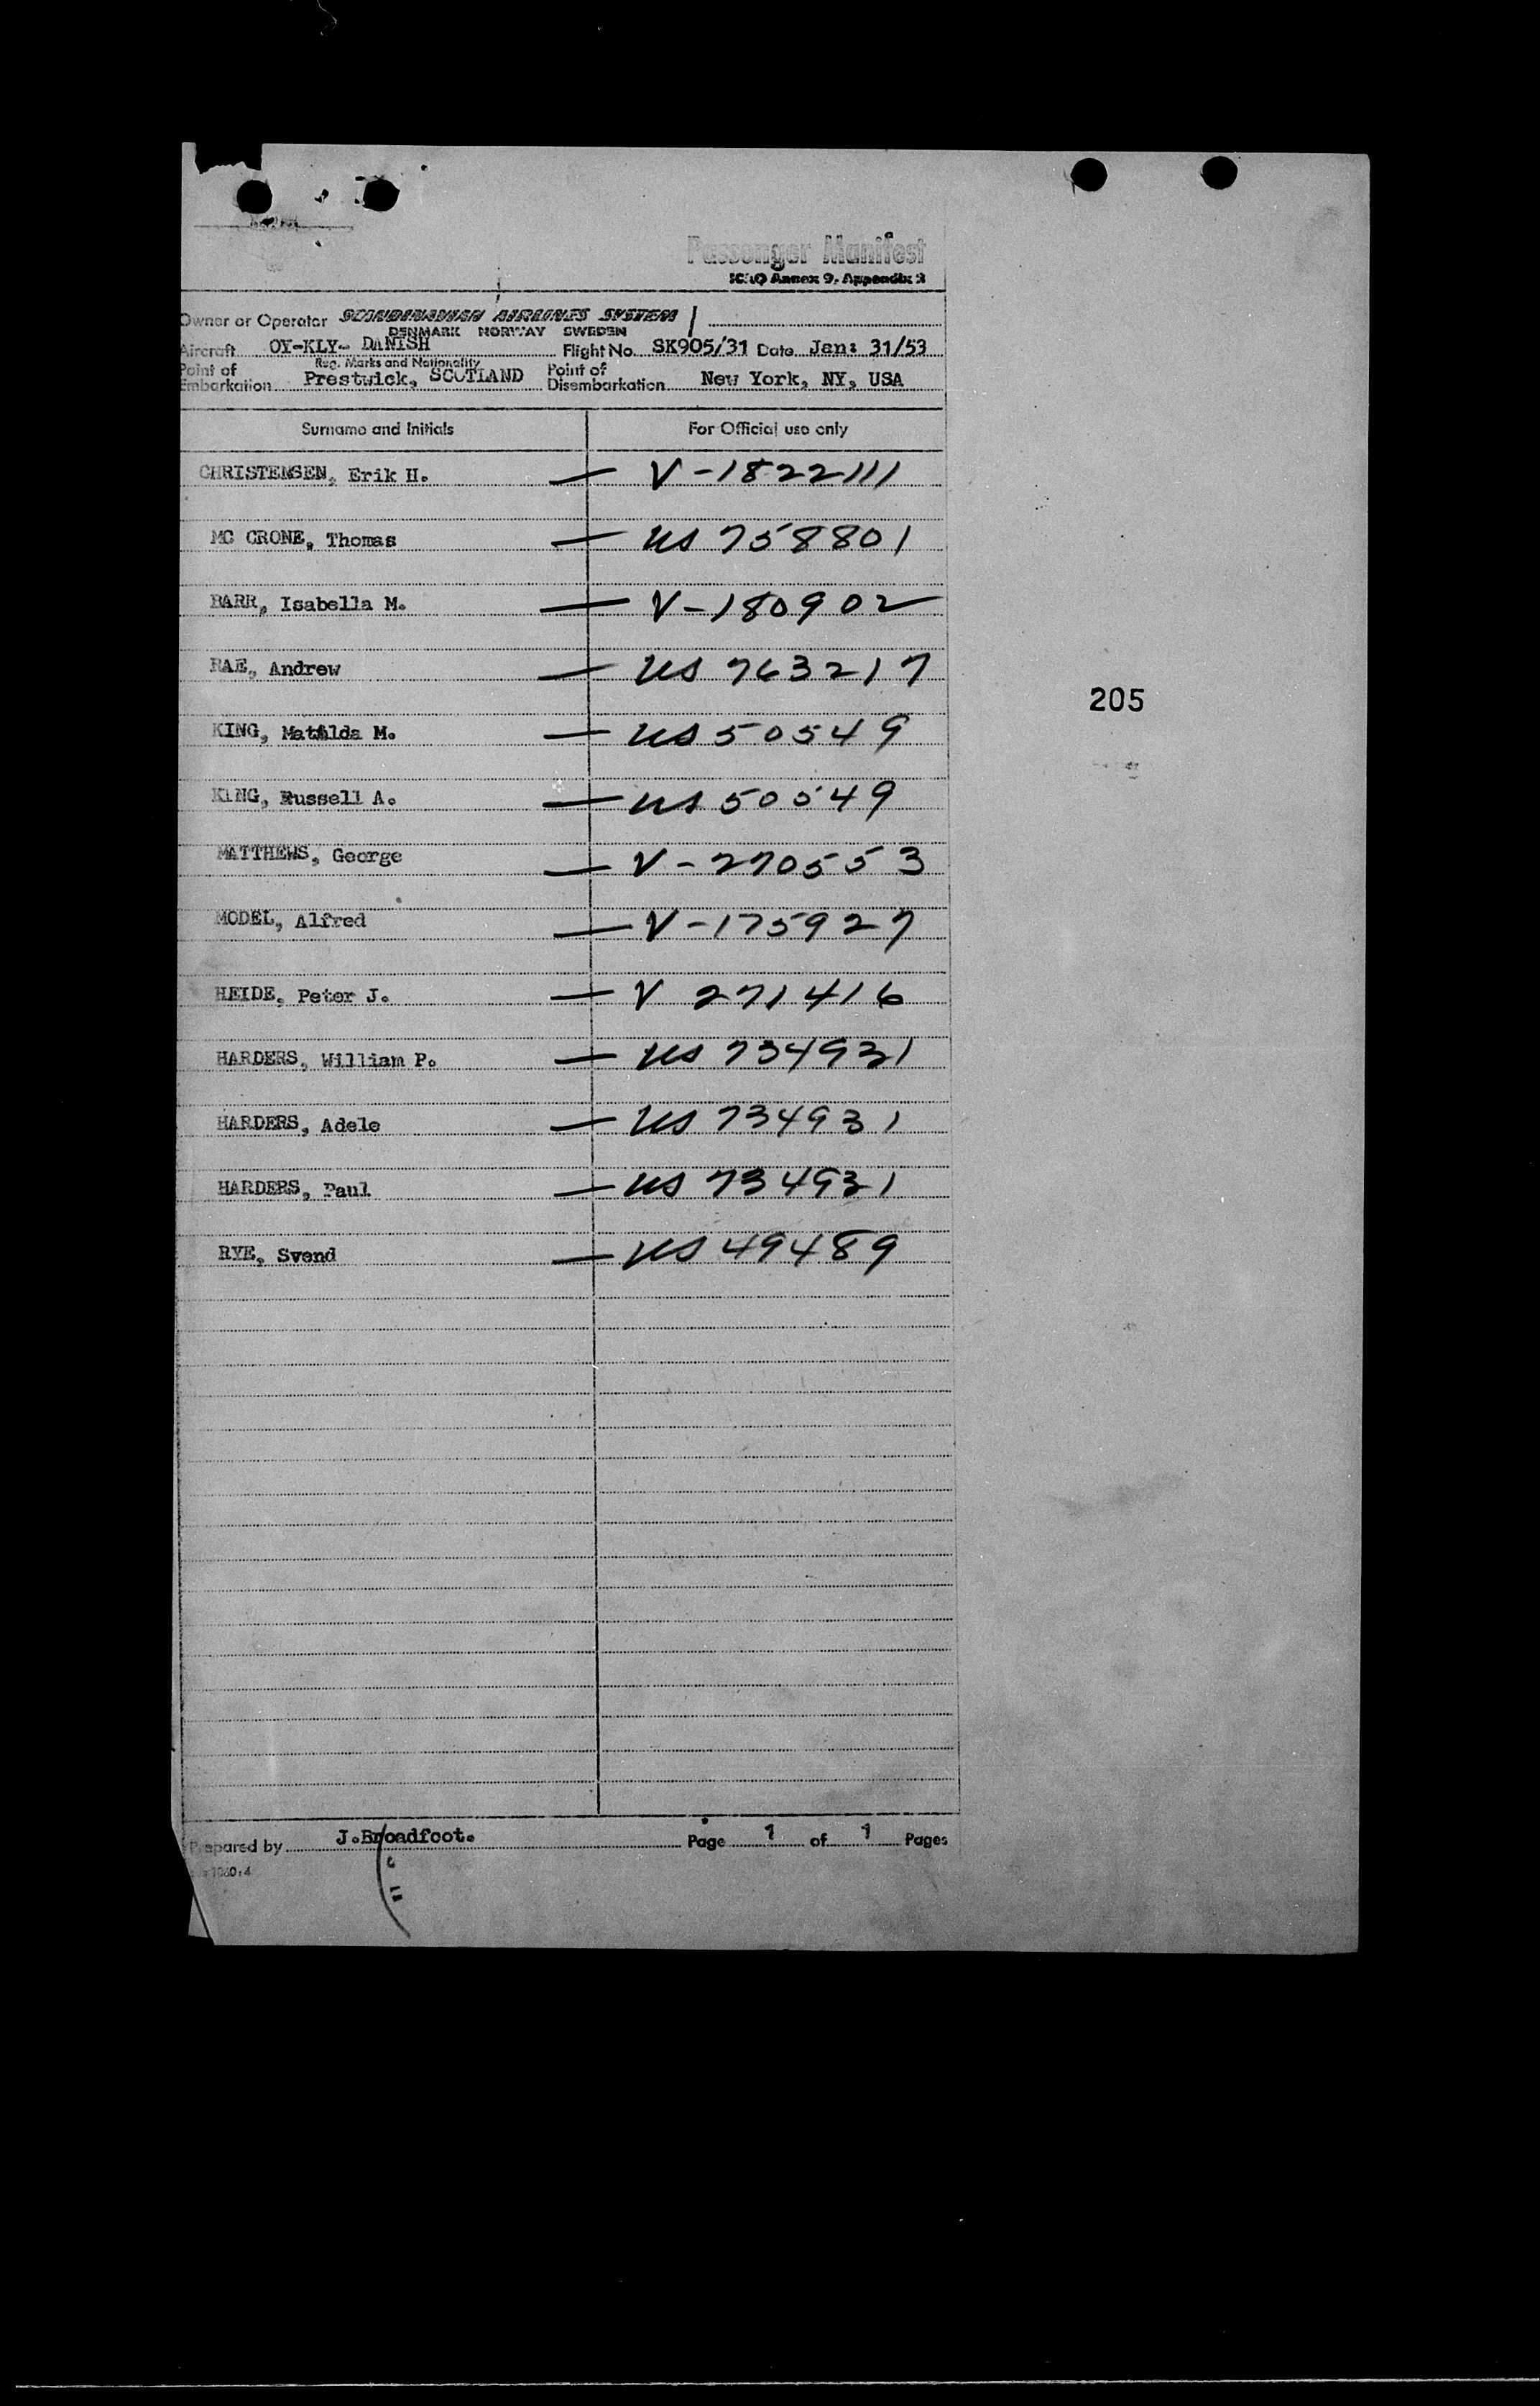 Passenger Manifest
ICAO Annex 9, Appendix 3
Owner or Operator SCANDINAVIAN AIRLINES SYSTEM
DENMARK NORWAY SWEDEN
Aircraft OY-KLY- DANISH Flight No. SK905/31 Date Jan: 31/53
Reg. Marks and Nationality
Point of Embarkation Prestwick, SCOTLAND Point of Disembarkation New York, NY, USA
Surname and Initials For Official use only
CHRISTENSEN, Erik H. — V-1822111
MC CRONE, Thomas — US 758801
BARR, Isabella M. — V-180902
RAE, Andrew — US 763217
205
KING, Matilda M. — US 50549
KING, Russell A. — US 50549
MATTHEWS, George — V-270553
MODEL, Alfred — V-175927
HEIDE, Peter J. — V 271416
HARDERS, William P. — US 734931
HARDERS, Adele — US 734931
HARDERS, Paul — US 734931
RYE, Svend — US 49489
Prepared by J.Broadfoot. Page 1 of 1 Pages